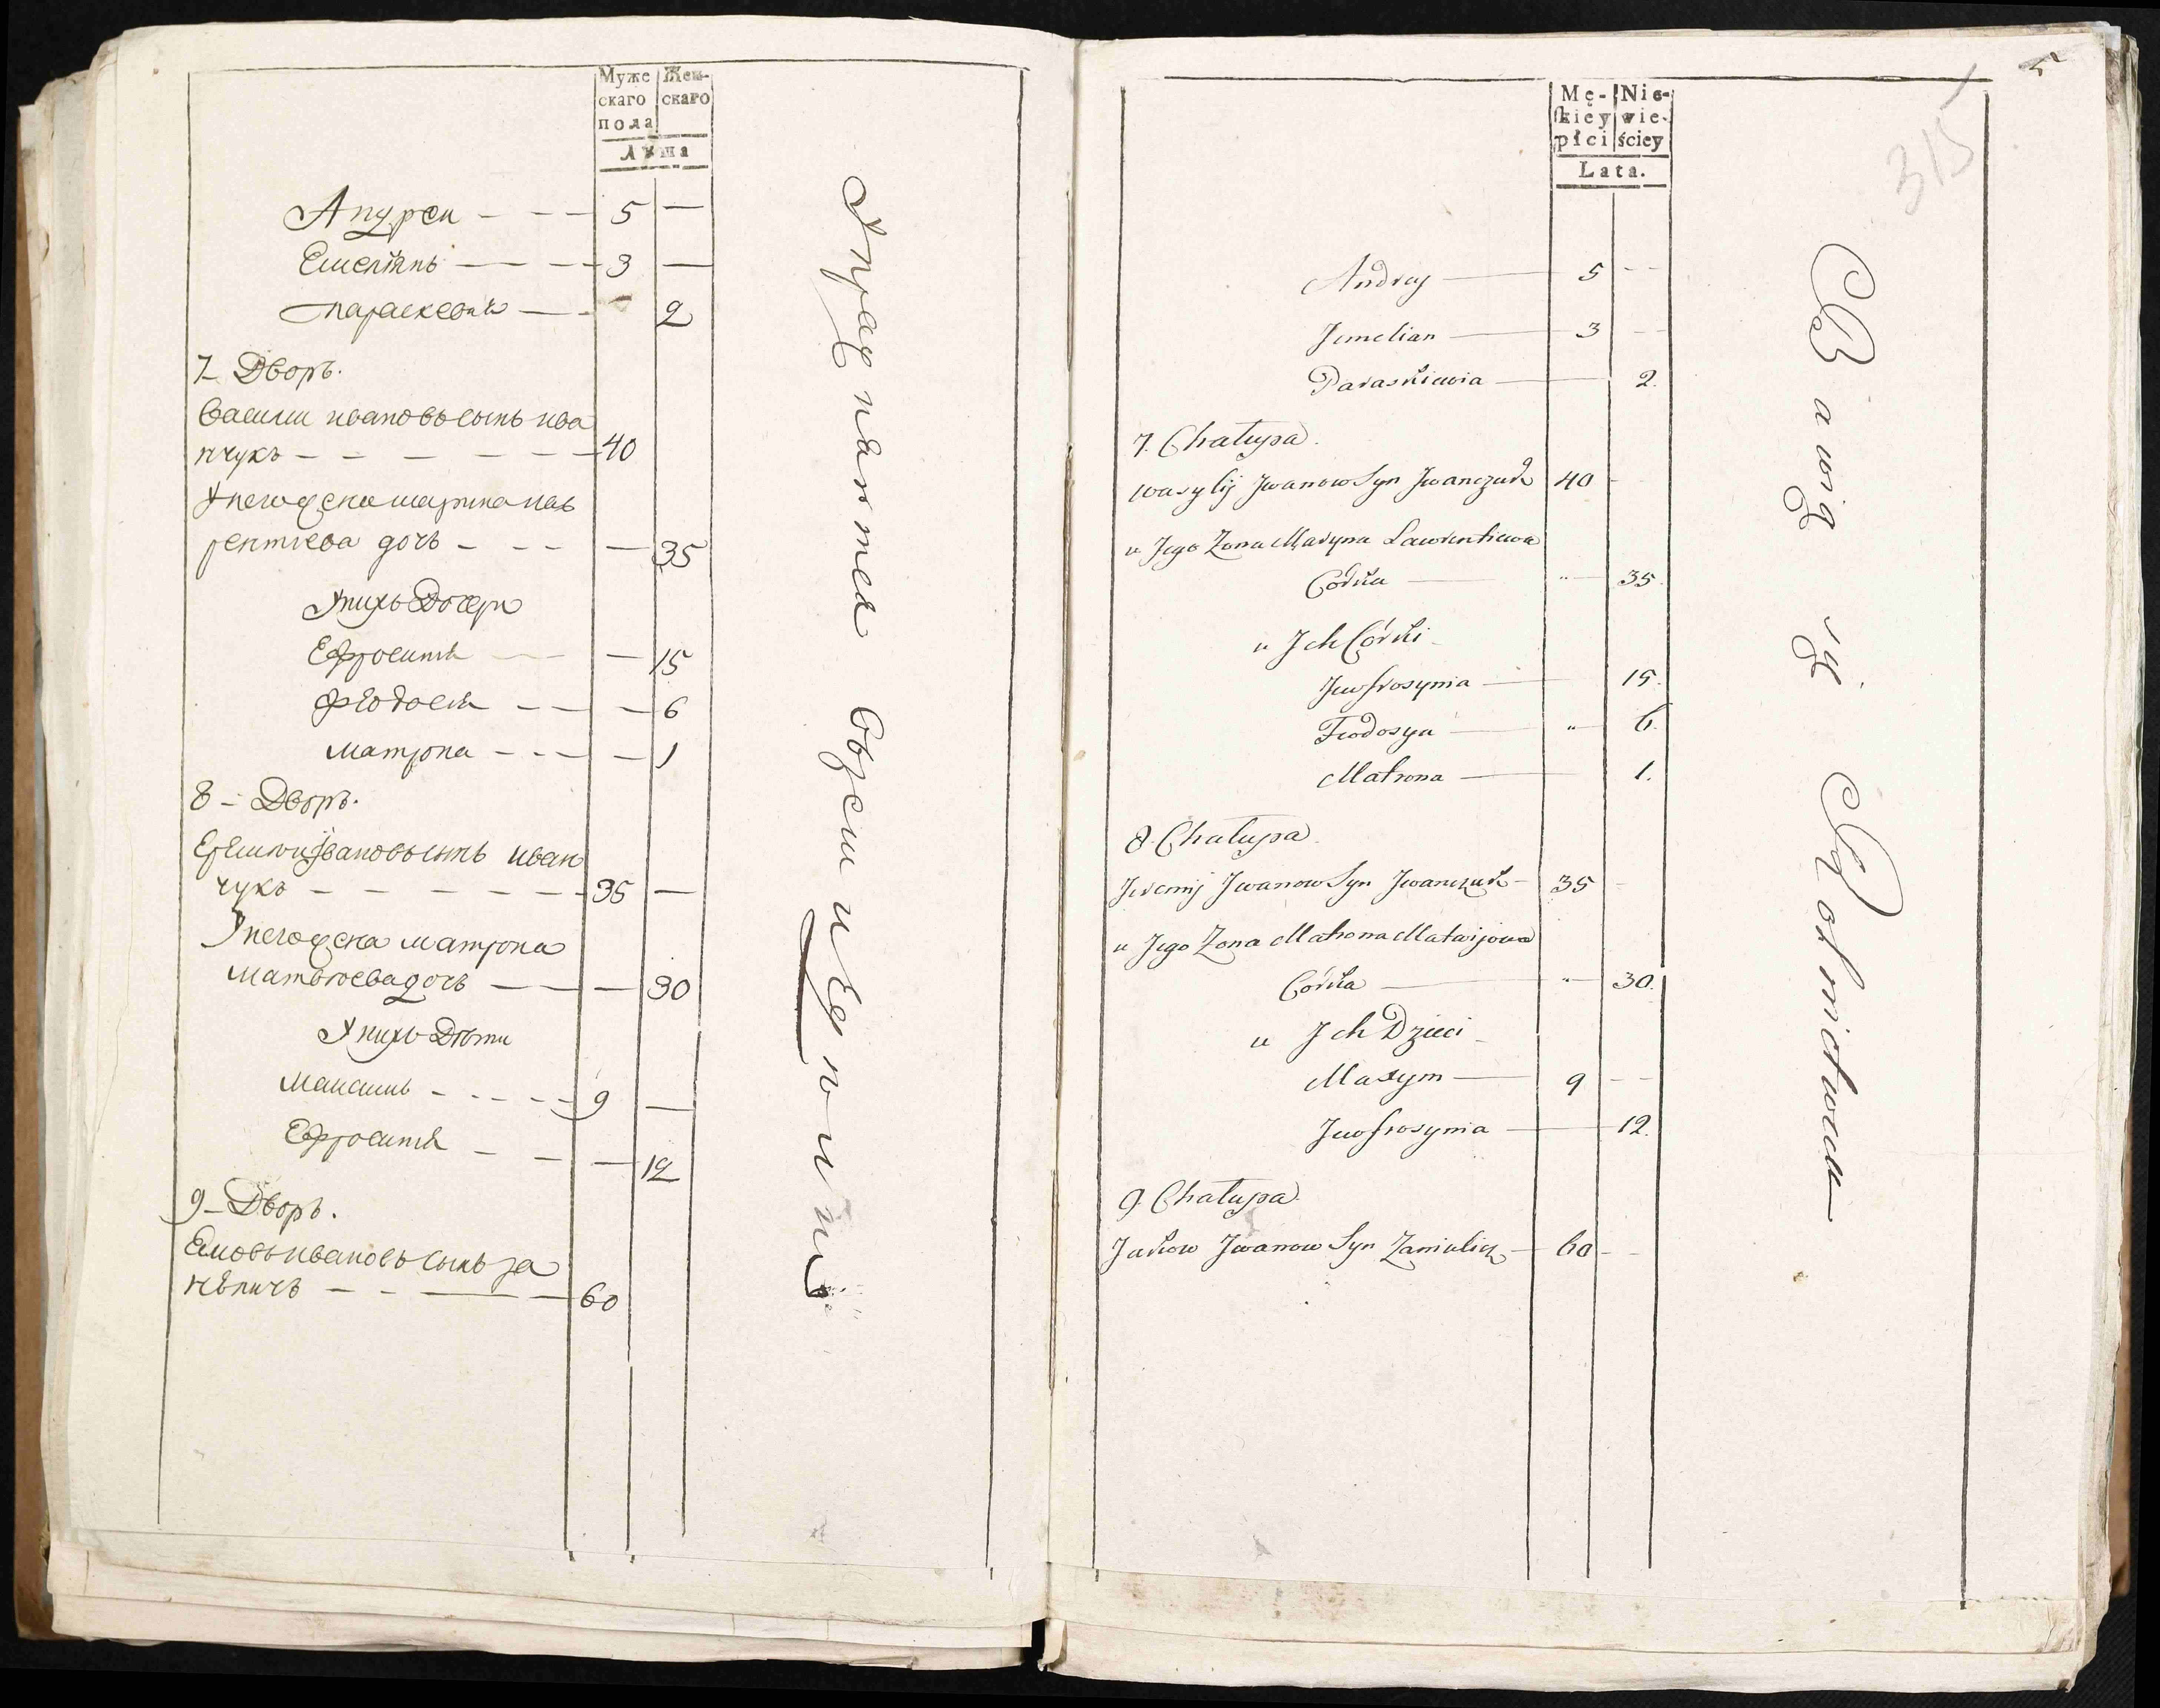 Муже
скаго
пола
Жен-
скаго
Лѣта
Андреи - - - 5 —
Емелїянъ — — — 3 —
Параскевия — - 2
7 - Дворъ.
Василии ивановъ сынъ ива
нчукъ - - - - - - 40
У него жена марина лав
рентиева дочь - - - — 35
У нихъ Дочери
Ефросиния — — 15
Феодосия - — — 6
матрона - - - — 1
8 - Дворъ.
Еремии ивановъ сынъ иван
чукъ - - - - - - 35 —
У него жена матрона
матвѣева дочь — — — 30
У нихъ Дѣти
максимъ - - - - - 9 —
Ефросиния - - — 12
9 - Дворъ.
ивановъ сынъ за
ничъ - - — — 60
Упражняются
Mę-
skiey
płci
Nie-
wie-
ściey
Lata.
5
315
Andrey — 5 - -
Jemelian — 3 - -
Paraskiewia — 2.
7. Chałupa.
Wasylij Jwanow Syn Jwanczuk 40 -
u Jego Żona Maryna Lawrentiewa
Córka — " — 35.
u Jch Córki
Jewfrosynia — 15.
Feodosya — " 6.
Matrona — 1.
8. Chałupa.
Jeremij Jwanow Syn Jwanczuk - 35 -
u Jego Żona Matrona Matwijowa
Córka — " — 30.
u Jch Dzieci
Maxym — 9 - -
Jewfrosynia — 12.
9. Chałupa.
Jakow Jwanow Syn — 60 - -
Bawią się Rolnictwem